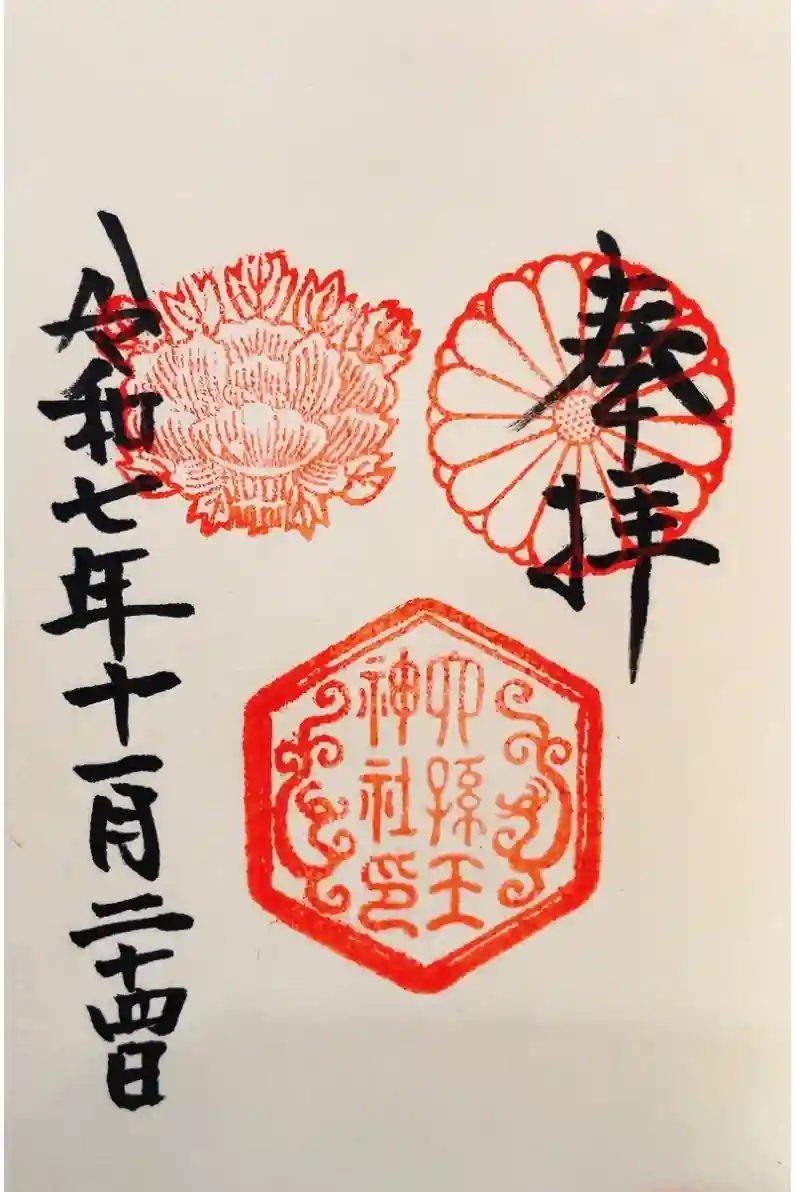 奉拝
六孫王
神社印
令和七年十一月二十四日